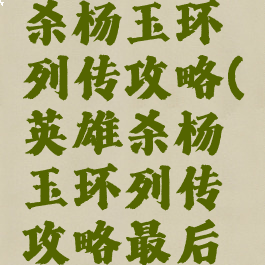 杀杨玉环
列传攻略(
英雄杀杨
玉环列传
攻略最后